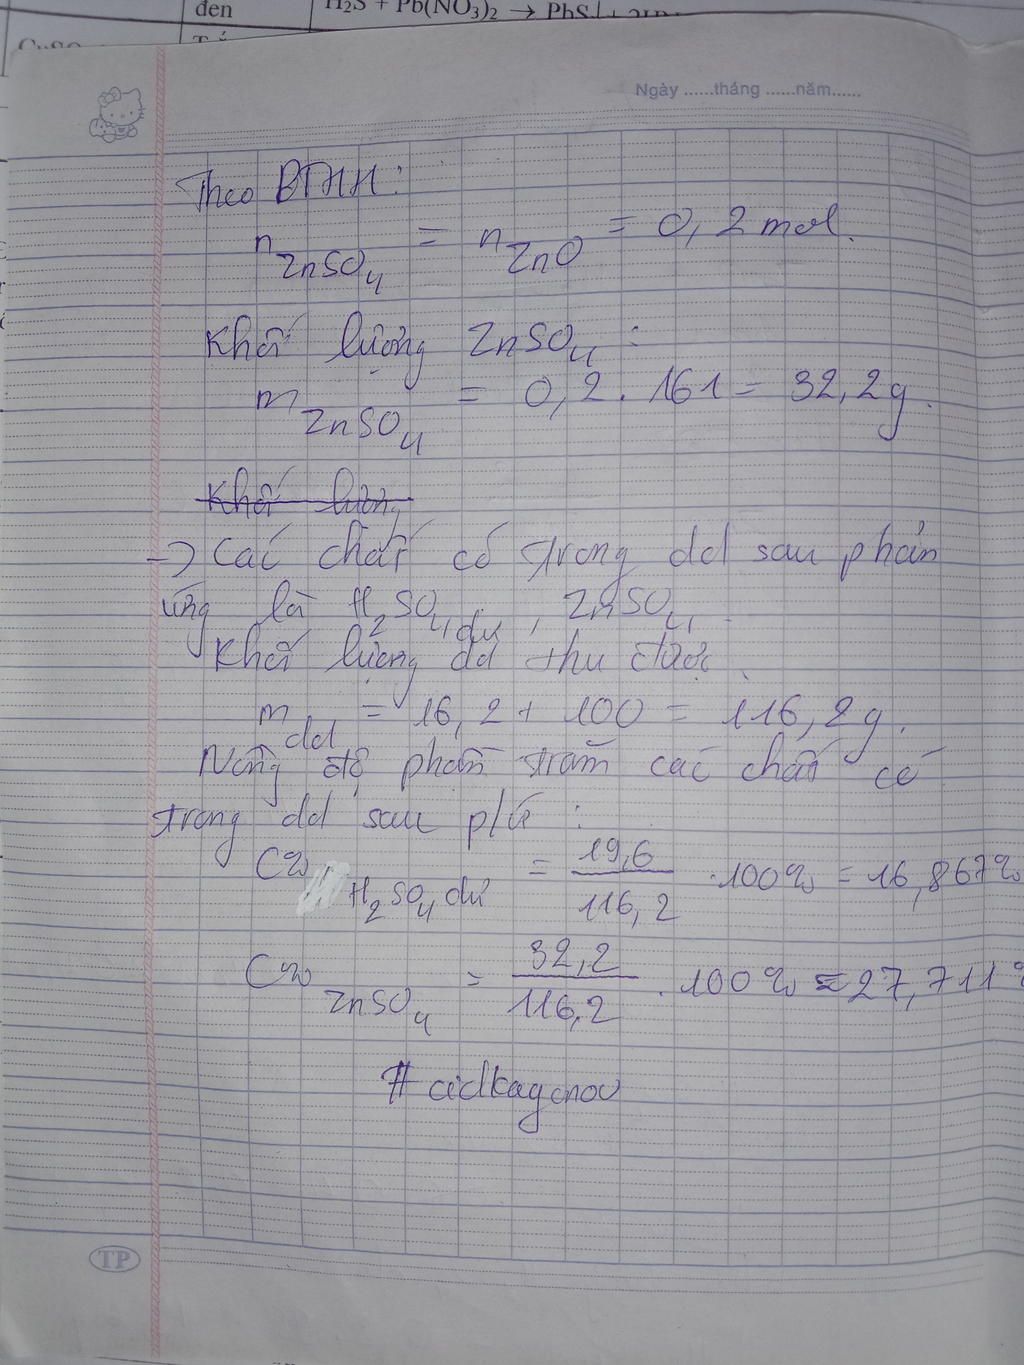 đen
H₂S + Pb(NO₃)₂ → PbS↓ +
CuSO
Ngày ......tháng ......năm......
Theo PTHH:
n ZnSO₄ = n ZnO = 0,2 mol.
Khối lượng ZnSO₄ :
m ZnSO₄ = 0,2 . 161 = 32,2g.
Khối lượng
→ Các chất có trong dd sau phản
ứng là H₂SO₄ dư , ZnSO₄.
Khối lượng dd thu được
m dd = 16,2 + 100 = 116,2g.
Nồng độ phần trăm các chất có
trong dd sau p/ứ :
C% H₂SO₄ dư = 19,6/116,2 .100% = 16,867%
C% ZnSO₄ = 32,2/116,2 . 100% = 27,711%
TP